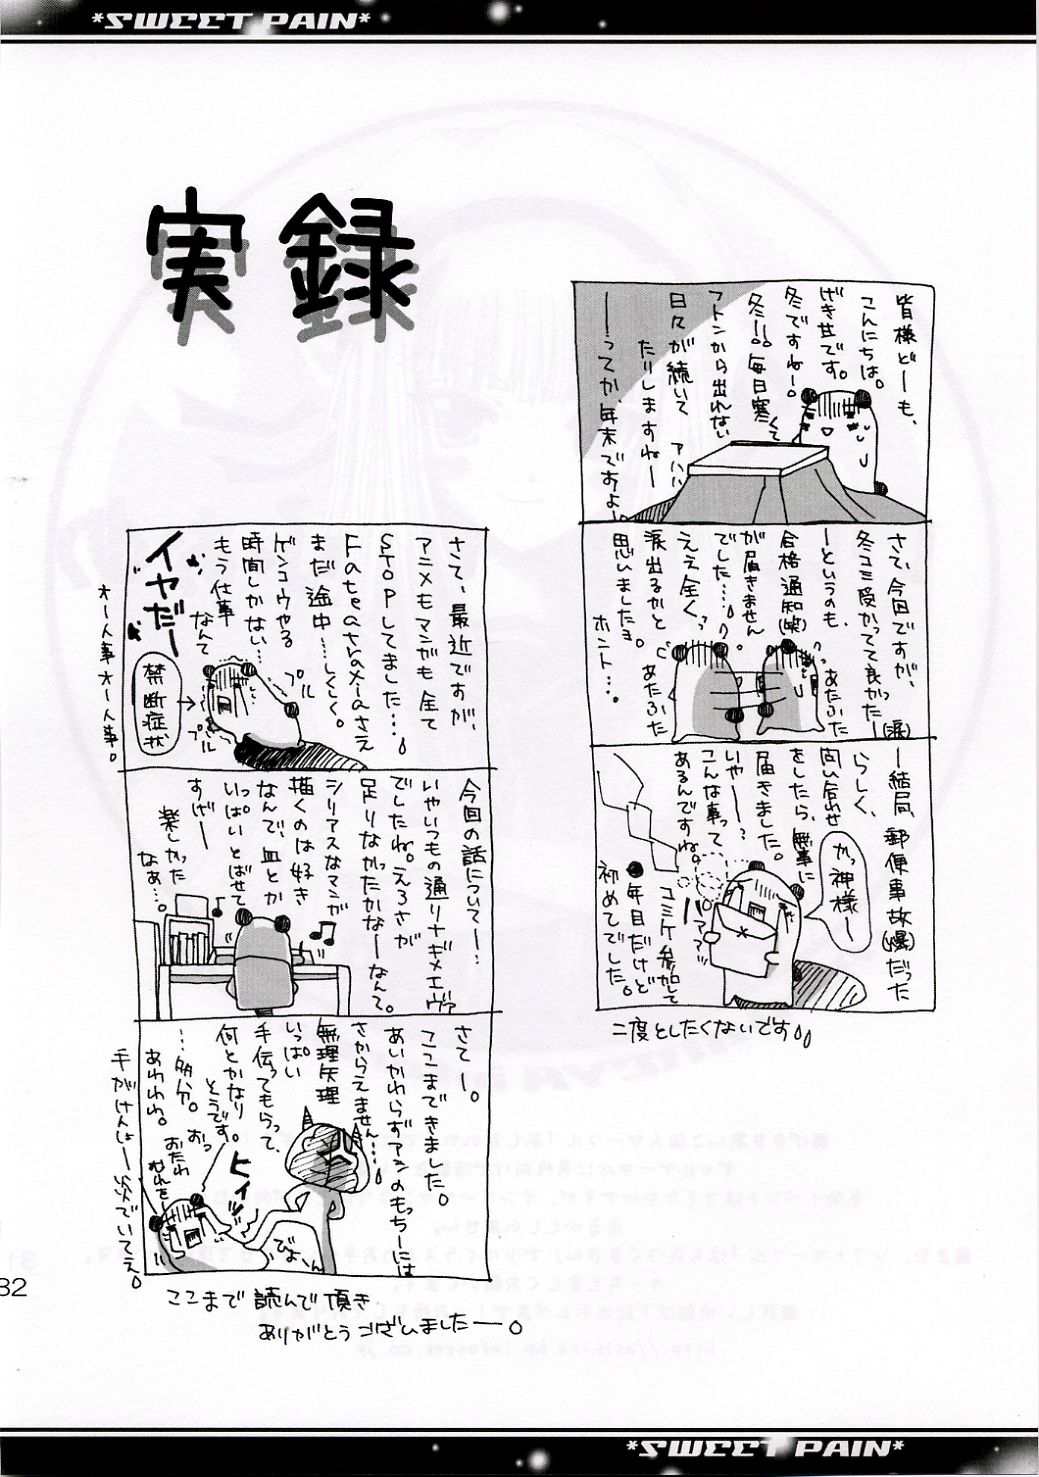 *SWEET PAIN*
実録
皆様どーも、
こんにちは。
げきせです。
冬ですねー。
冬ーー。毎日寒くて
フトンから出れない
日々が続いて
たりしますねー
アハハ
ーーってか、年末ですよー。
さて、今回ですが、
冬コミ受かってて良かったー(涙)
ーというのも、
合格通知(笑)
が届きません
でした…。
ええ全くっ
涙出るかと
思いましたョ。
ホント…。
あたふた
あたふた
ー結局、郵便事故(爆)だった
らしく、
問い合わせ
をしたら、無事に
届きました。
いやーー?
こんな事って
あるんですね。
かっ神様ー
パアアア
コミケ参加して
●年目だけど
初めてでした。
二度としたくないです。
さて、最近ですが、
アニメもマンガも全て
STOPしてました…。
Fateもatraxiaさえ
まだ途中…しくしく。
ゲンコウやる
時間しかない…
もう仕事
なんて
イヤだー
プルプル
禁断症状
オー人事オー人事。
今回の話についてー…
いやいつもの通りナギ×エヴァ
でしたね。えろさが
足りなかったかなーなんて。
シリアスなマンガ
描くのは好き
なんで、血とか
いっぱいとばせて
すげー
楽しかった
なぁ…。
さてー。
ここまできました。
あいかわらずアシのもっちーには
さからえません…。
無理矢理
いっぱい
手伝ってもらって、
何とかなり
そうです。
…多分。
あわわわ。
おっ
おたわ
むれをー
ヒイッ
びよーん
手がけんしょー炎でいてえ。
ここまで読んで頂き
ありがとうございましたー。
32
*SWEET PAIN*